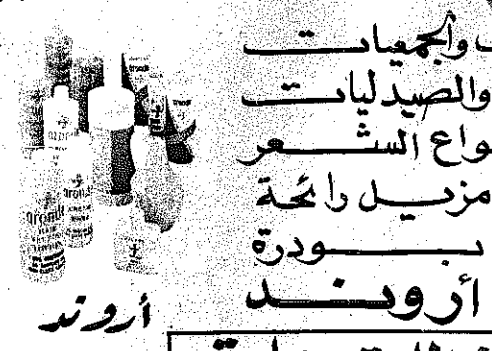 والجمعيات
والصيدليات
واع الشعر
مزيل رائحة
بودرة
أروند
أروند